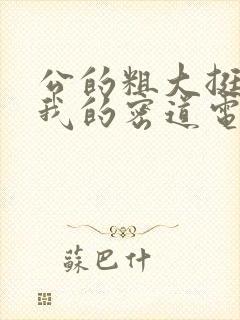 公的粗大挺
我的密道電
蘇巴什